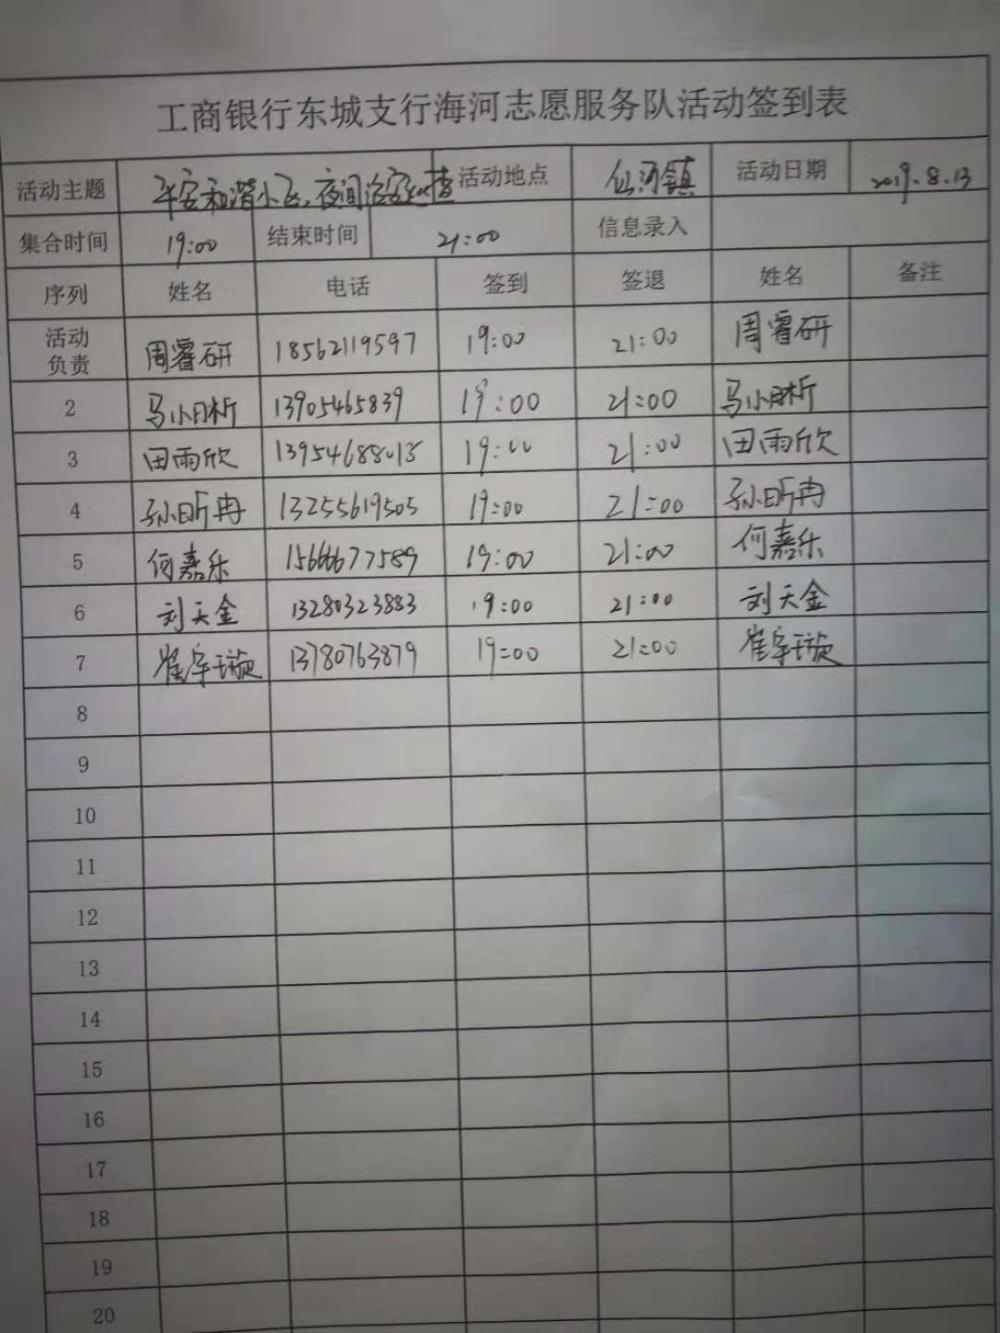 工商银行东城支行海河志愿服务队活动签到表
活动主题 平安和谐小区,夜间治安巡查 活动地点 仙河镇 活动日期 2019.8.13
集合时间 19:00 结束时间 21:00 信息录入
序列 姓名 电话 签到 签退 姓名 备注
活动
负责 周睿研 18562119597 19:00 21:00 周睿研
2 马小明析 13905465839 19:00 21:00 马小明析
3 田雨欣 13954688015 19:00 21:00 田雨欣
4 孙昕冉 13255619505 19:00 21:00 孙昕冉
5 何嘉乐 15666677589 19:00 21:00 何嘉乐
6 刘天金 13280323883 19:00 21:00 刘天金
7 崔宇璇 13780763879 19:00 21:00 崔宇璇
8
9
10
11
12
13
14
15
16
17
18
19
20